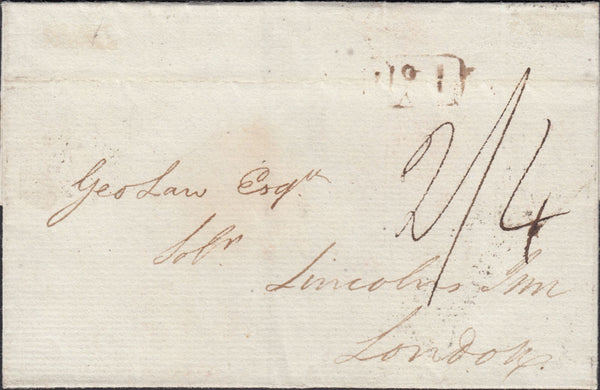 No 1
2/4
Geo Law Esqr
Solr
Lincolns Inn
London